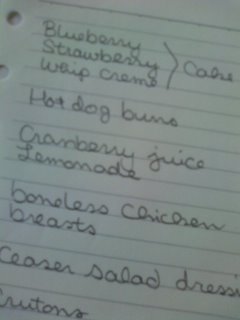 Blueberry
Strawberry
Whip creme
Cake
Hot dog buns
Cranberry juice
Lemonade
boneless chicken
breasts
Ceaser salad dressi
Crutons